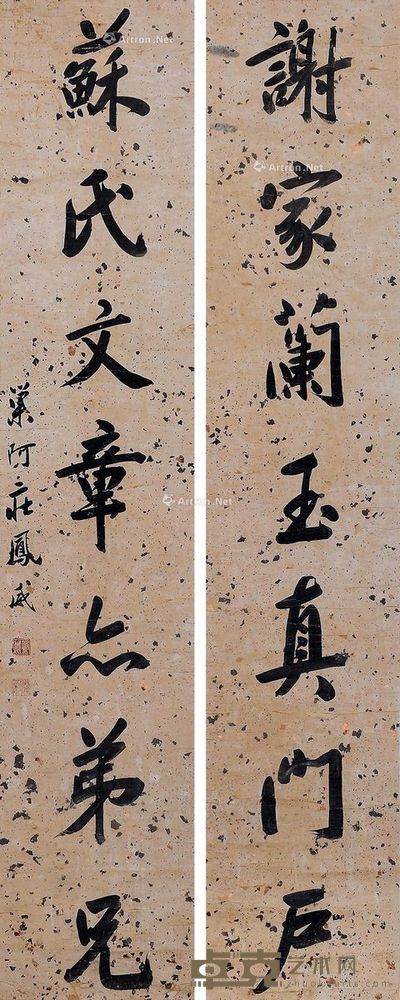 謝家蘭玉真門戶
蘇氏文章亦弟兄
阿庄鳳威
Artron.Net
Artron.Net
Artron.Net
Artron.Net
卓克艺术网